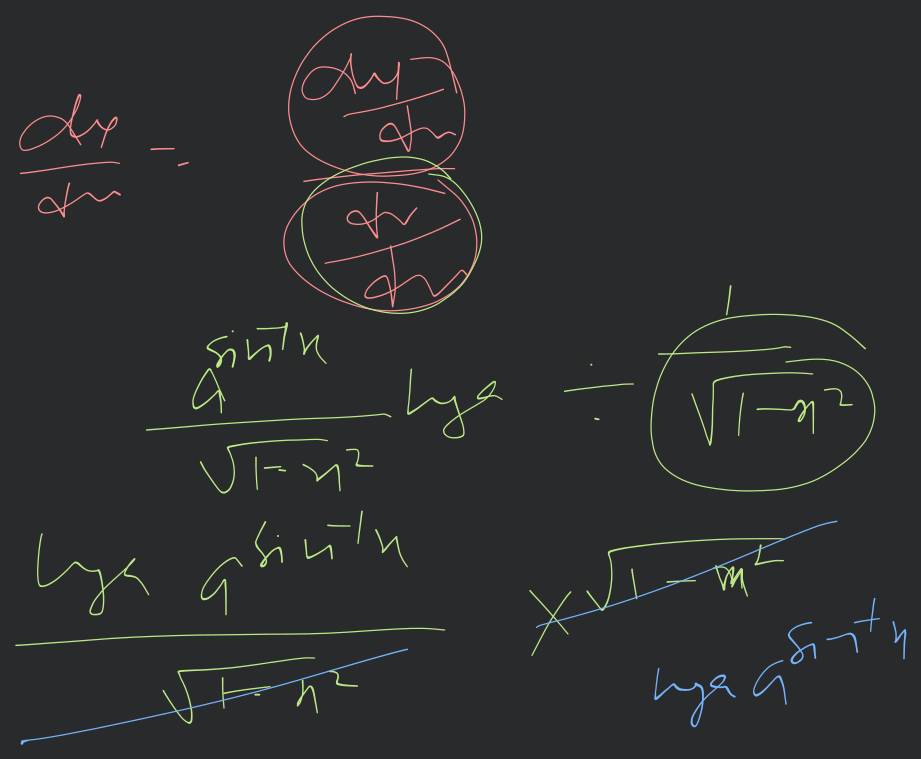 dy/dv = (dy/dx)/(dv/dx)
a^(sin⁻¹x)/√(1-x²) log a ÷ 1/√(1-x²)
log a a^(sin⁻¹x)/√(1-x²) × √(1-x²)
log a a^(sin⁻¹x)